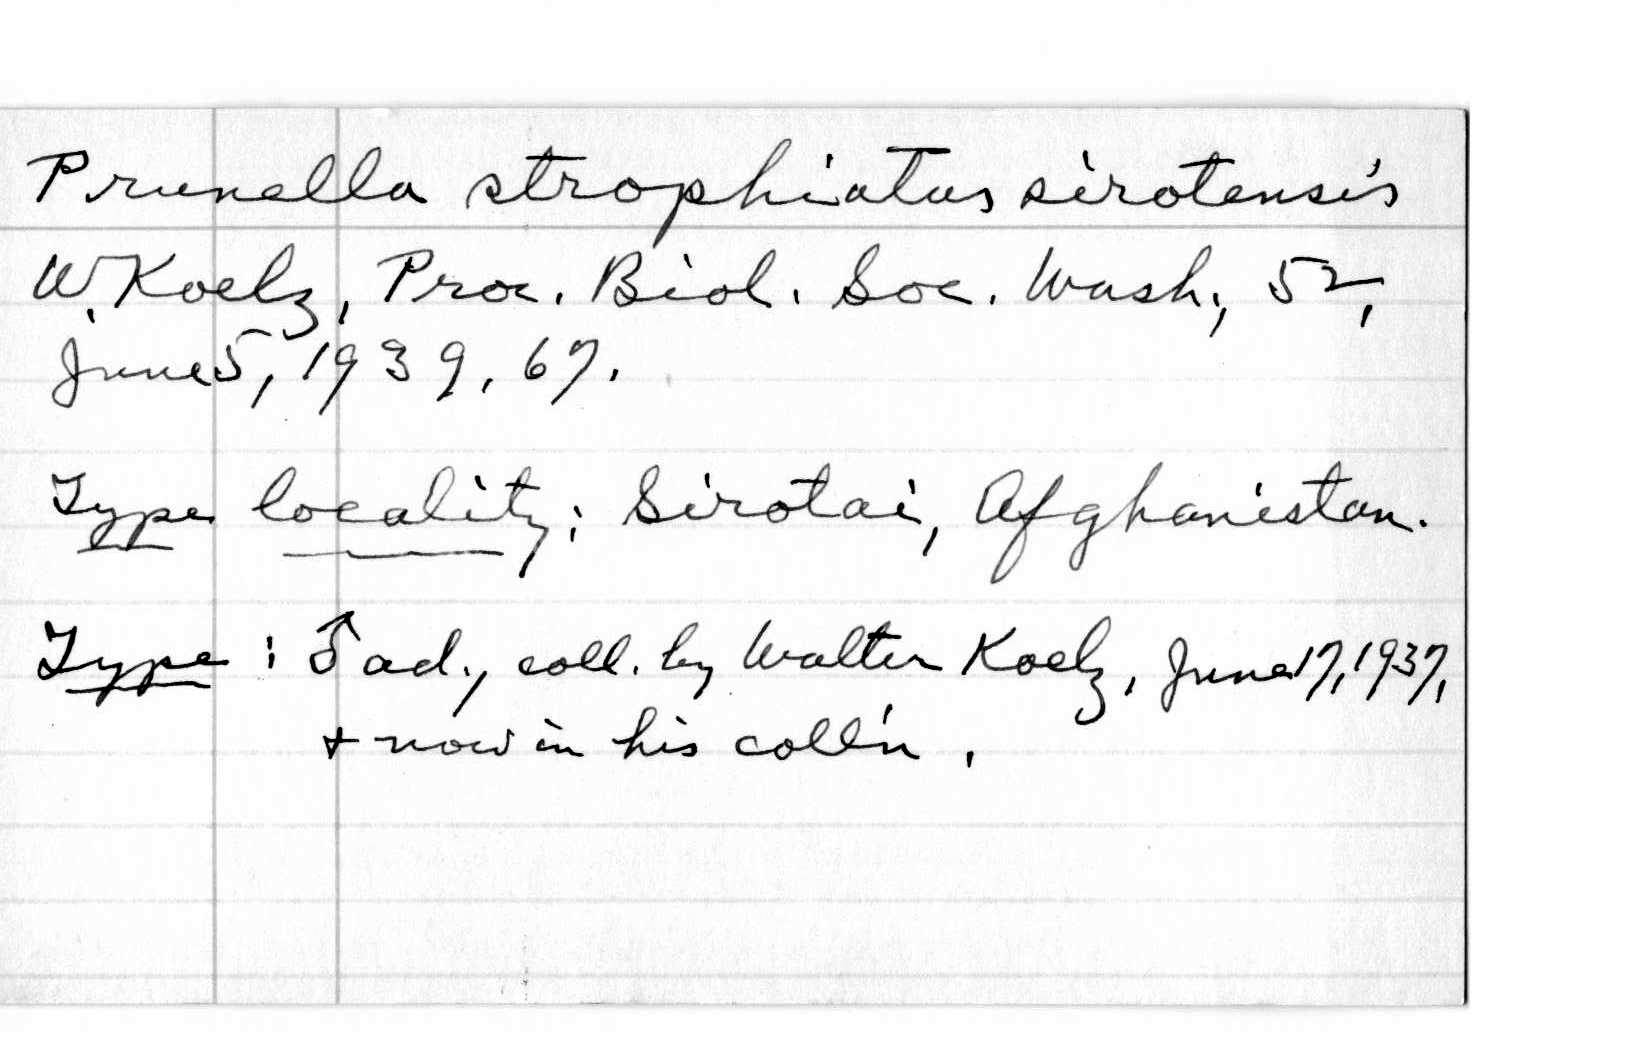 Prunella strophiatus sirotensis
W. Koelz, Proc. Biol. Soc. Wash., 52,
June 5, 1939, 67.
Type locality: Sirotai, Afghanistan.
Type: ♂ ad., coll. by Walter Koelz, June 17, 1937,
+ now in his coll'n.